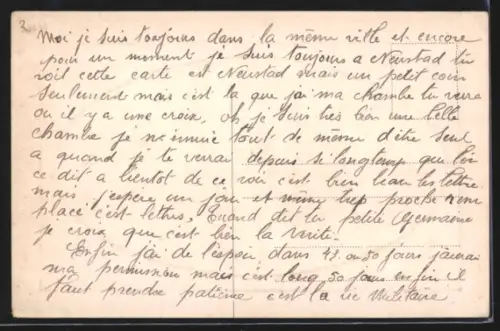 2
Moi je suis toujours dans la même ville et encore
pour un moment je suis toujours a Neustad tu
voit cette carte est Neustad mais un petit coin
seulement mais c'est la que j'ai ma chambre tu verra
ou il y a une croix, oh je suis très bien une belle
chambre je m'ennuie tout de même d'être seul
a quand je te verai depuis si longtemp que l'on
ce dit a bientot de ce voir c'est bien beau les lettre
mais j'espere un jour et même trep proche rem
place c'est lettres, Quand dit tu petite Germaine
je crois que c'est bien la verite.
Enfin j'ai de l'espoir dans 45 ou 50 jours j'aurai
ma permission mais c'est long 50 jours enfin il
faut prendre patience c'est la vie militaire